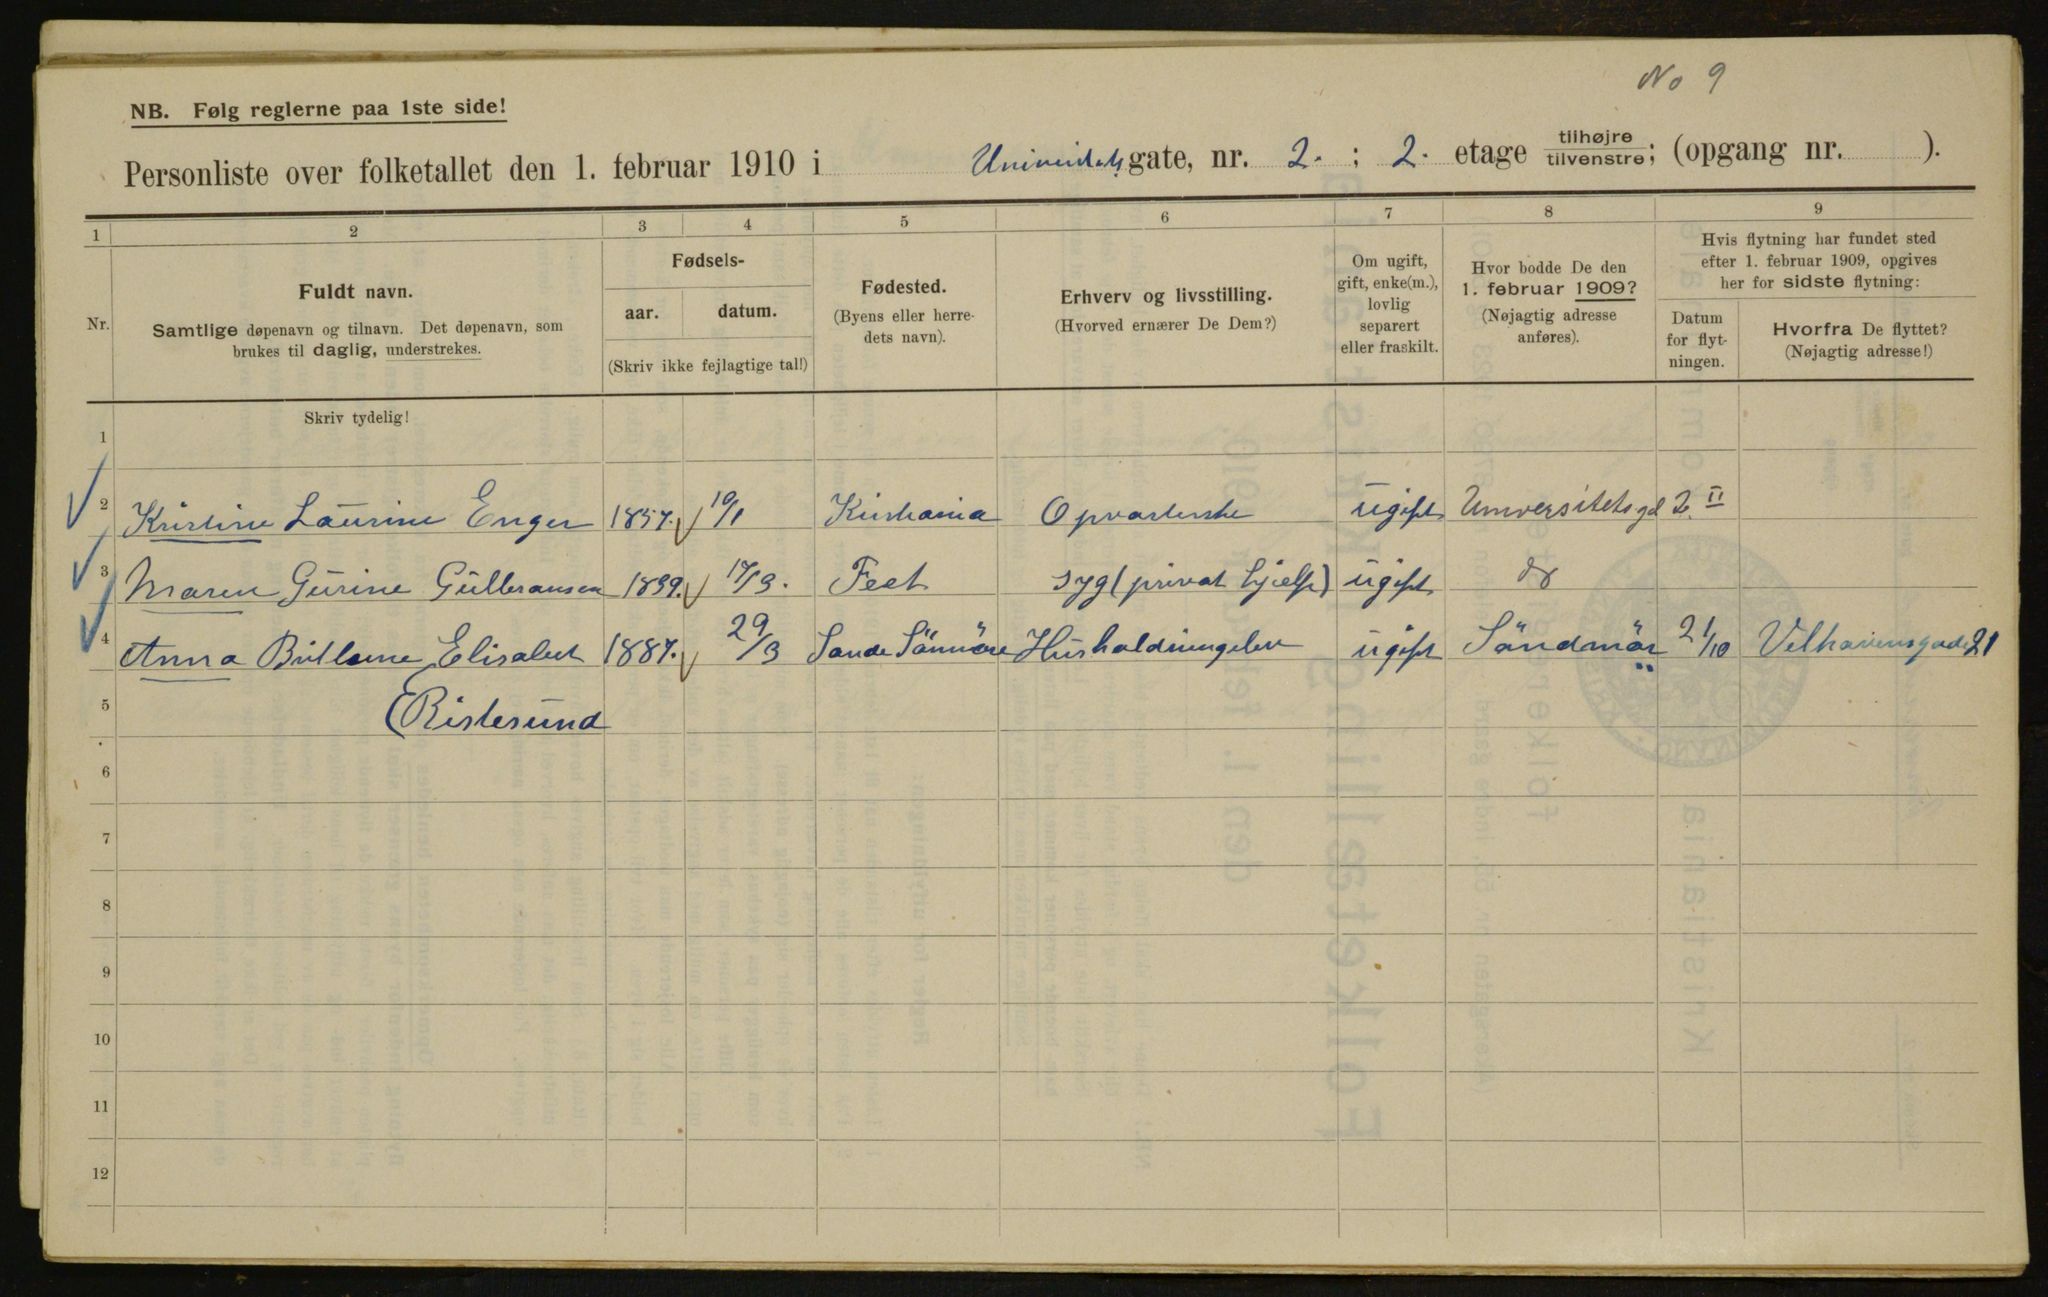 No 9
NB. Følg reglerne paa 1ste side!
Personliste over folketallet den 1. februar 1910 i Universitets gate, nr. 2. ; 2. etage tilhøjre tilvenstre; (opgang nr. ).
1 2 3 4 5 6 7 8 9
Nr.
Fuldt navn.
Samtlige døpenavn og tilnavn. Det døpenavn, som
brukes til daglig, understrekes.
Fødsels-
aar. datum.
(Skriv ikke fejlagtige tal!)
Fødested.
(Byens eller herre-
dets navn).
Erhverv og livsstilling.
(Hvorved ernærer De Dem?)
Om ugift,
gift, enke(m.),
lovlig
separert
eller fraskilt.
Hvor bodde De den
1. februar 1909?
(Nøjagtig adresse
anføres).
Hvis flytning har fundet sted
efter 1. februar 1909, opgives
her for sidste flytning:
Datum
for flyt-
ningen.
Hvorfra De flyttet?
(Nøjagtig adresse!)
Skriv tydelig!
1
2 Kristine Laurine Enger 1857. 10/1 Kristiania Opvarterske ugift Universitetsgd 2. II
3 Maren Gurine Gulbransen 1839. 17/3. Feet syg (privat hjelp) ugift do
4 Anna Elisabet 1887. 29/3 Sande Sönmöre Husholdningelev ugift Söndmör 21/10 Velhavensgade 21
5 Ristesund
6
7
8
9
10
11
12